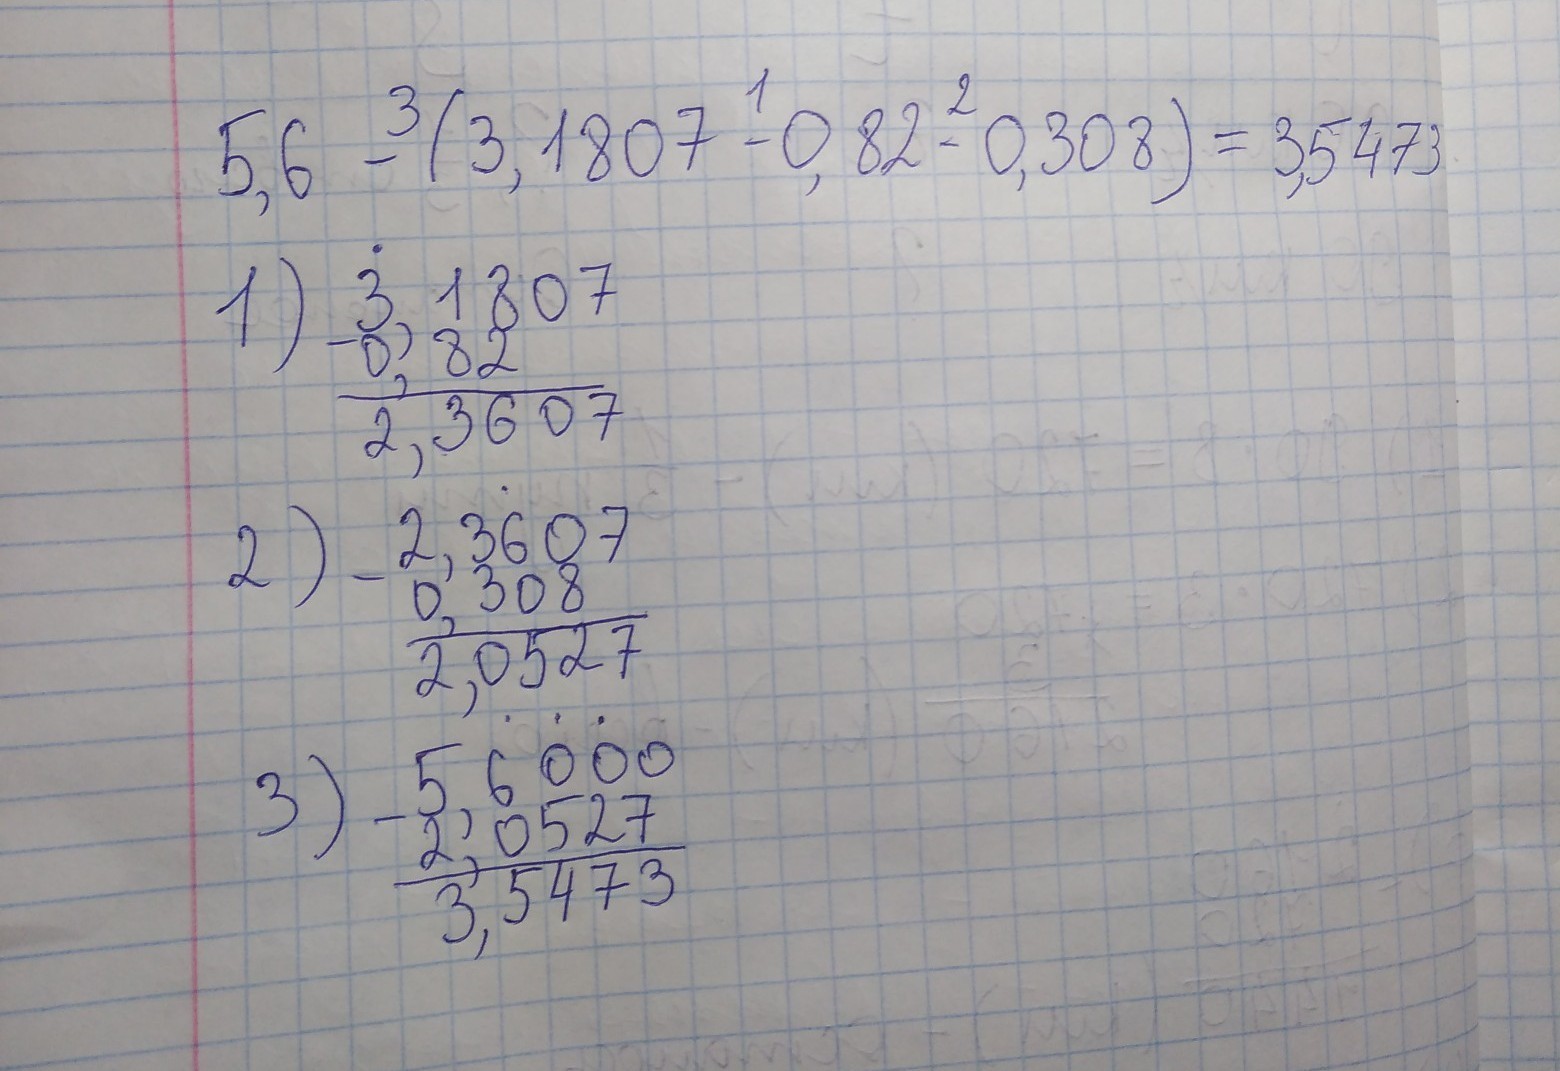 5,6 -³ (3,1807 -¹ 0,82 -² 0,308) = 3,5473
1) - 3,1807
0,82
2,3607
2) - 2,3607
0,308
2,0527
3) - 5,6000
2,0527
3,5473